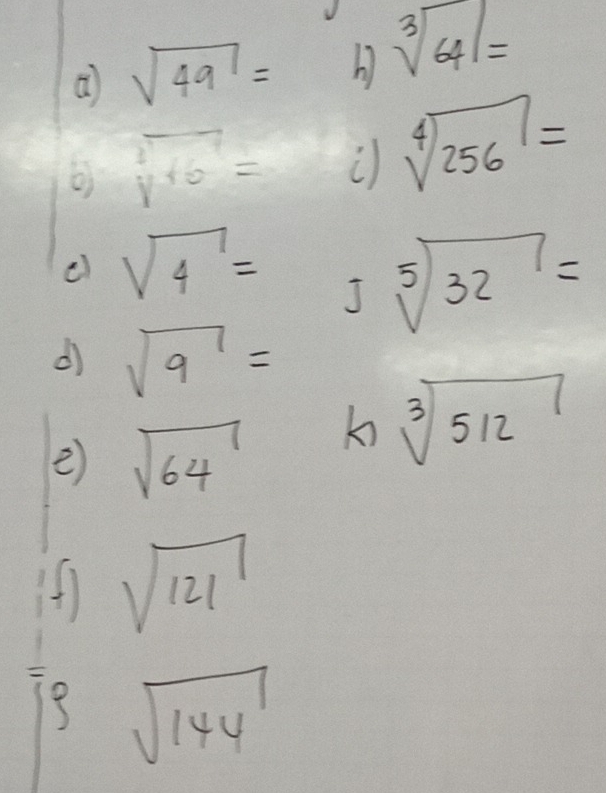 a) √49 =
b)
c) √4 =
d) √9 =
e) √64
f) √121
g √144
h) ∛64 =
i) ∜256 =
J ⁵√32 =
k) ∛512